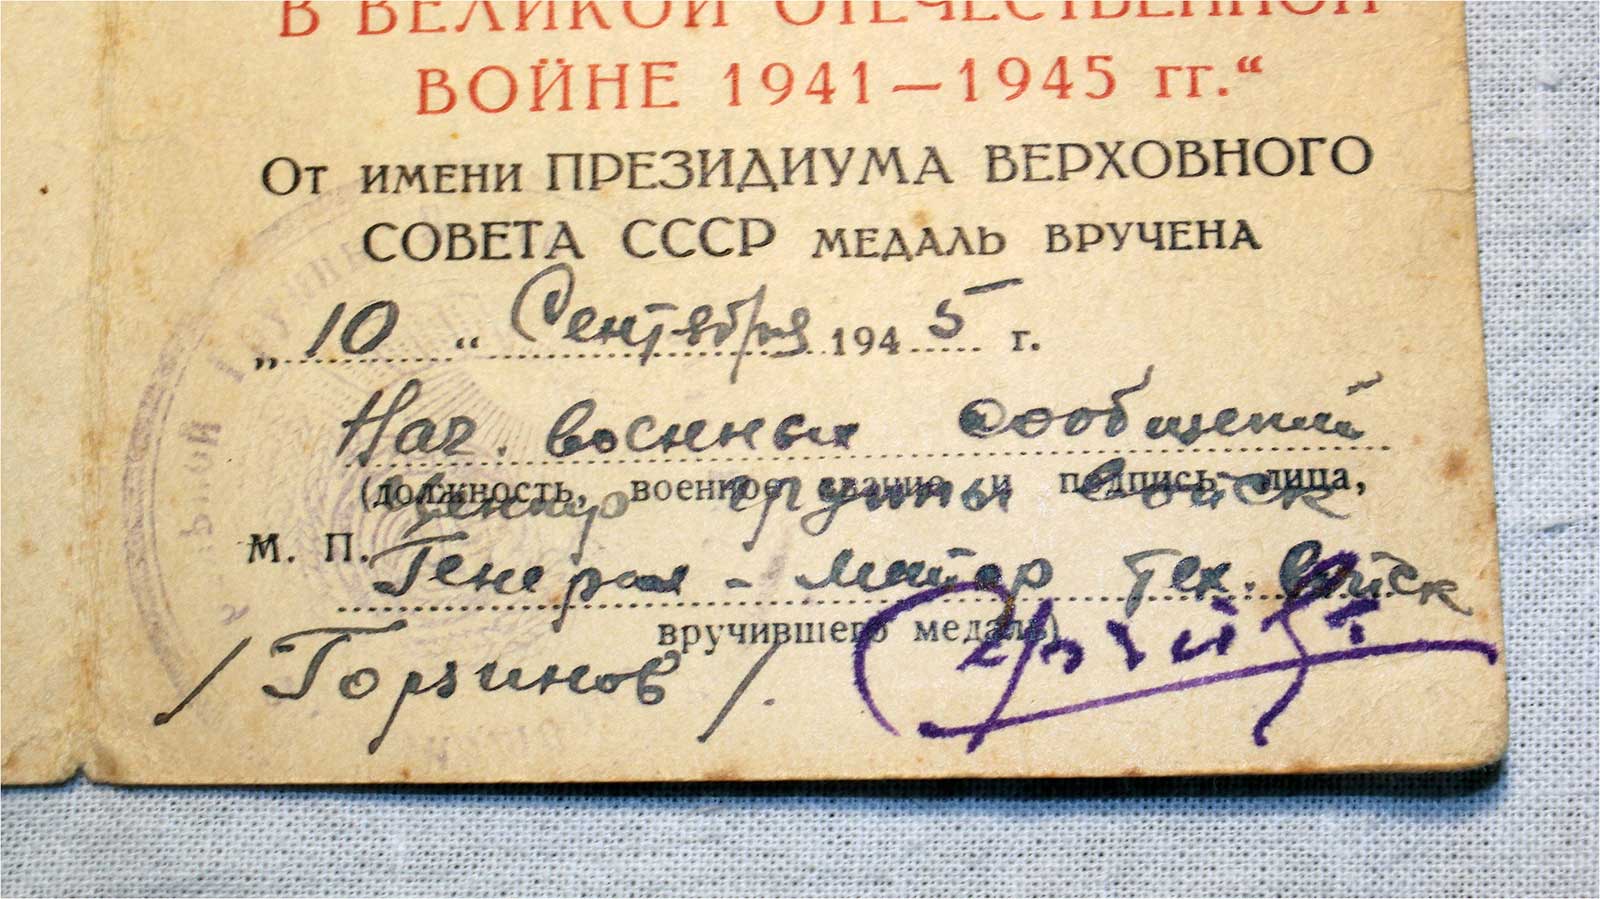 В ВЕЛИКОЙ ОТЕЧЕСТВЕННОЙ
ВОЙНЕ 1941—1945 гг.“
От имени ПРЕЗИДИУМА ВЕРХОВНОГО
СОВЕТА СССР МЕДАЛЬ ВРУЧЕНА
„10“ Сентября 1945 г.
Нач. военных сообщений
(должность, военное звание и подпись лица,
Центр группы войск
М. П.
Генерал-майор тех. войск
вручившего медаль)
/Горчинов/.